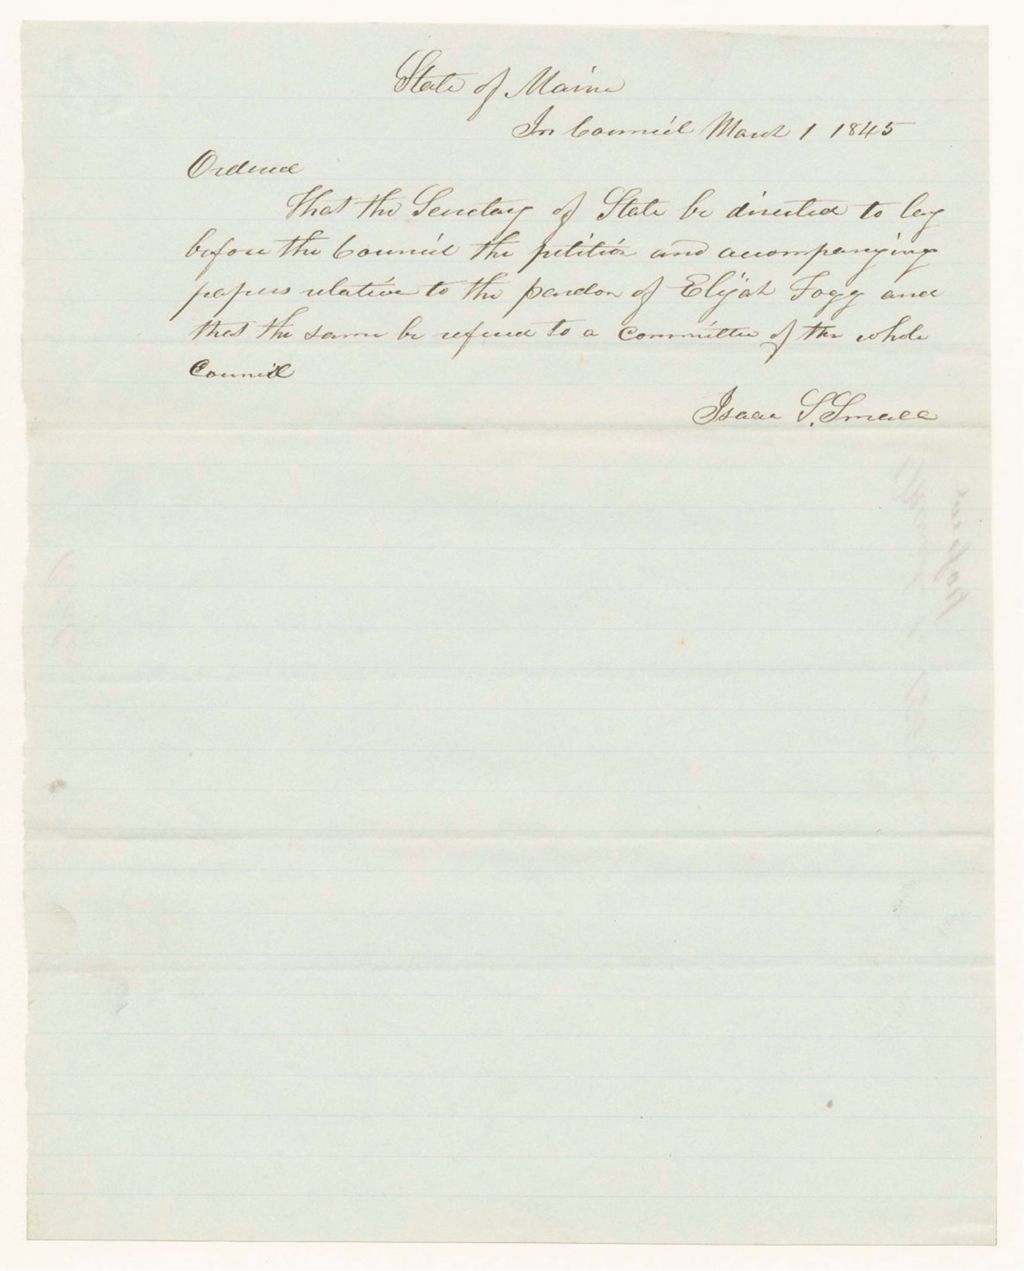 State of Maine
In Council March 1 1845
Ordered
That the Secretary of State be directed to lay
before the Council the petition and accompanying
papers relative to the pardon of Elijah Fogg and
that the same be referred to a Committee of the whole
Council
Isaac S. Small